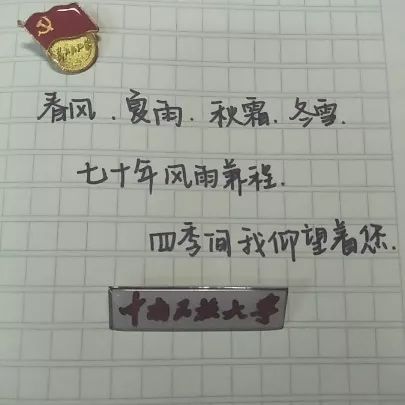 春风.夏雨.秋霜.冬雪.
七十年风雨兼程.
四季间我仰望着您.
中南民族大学